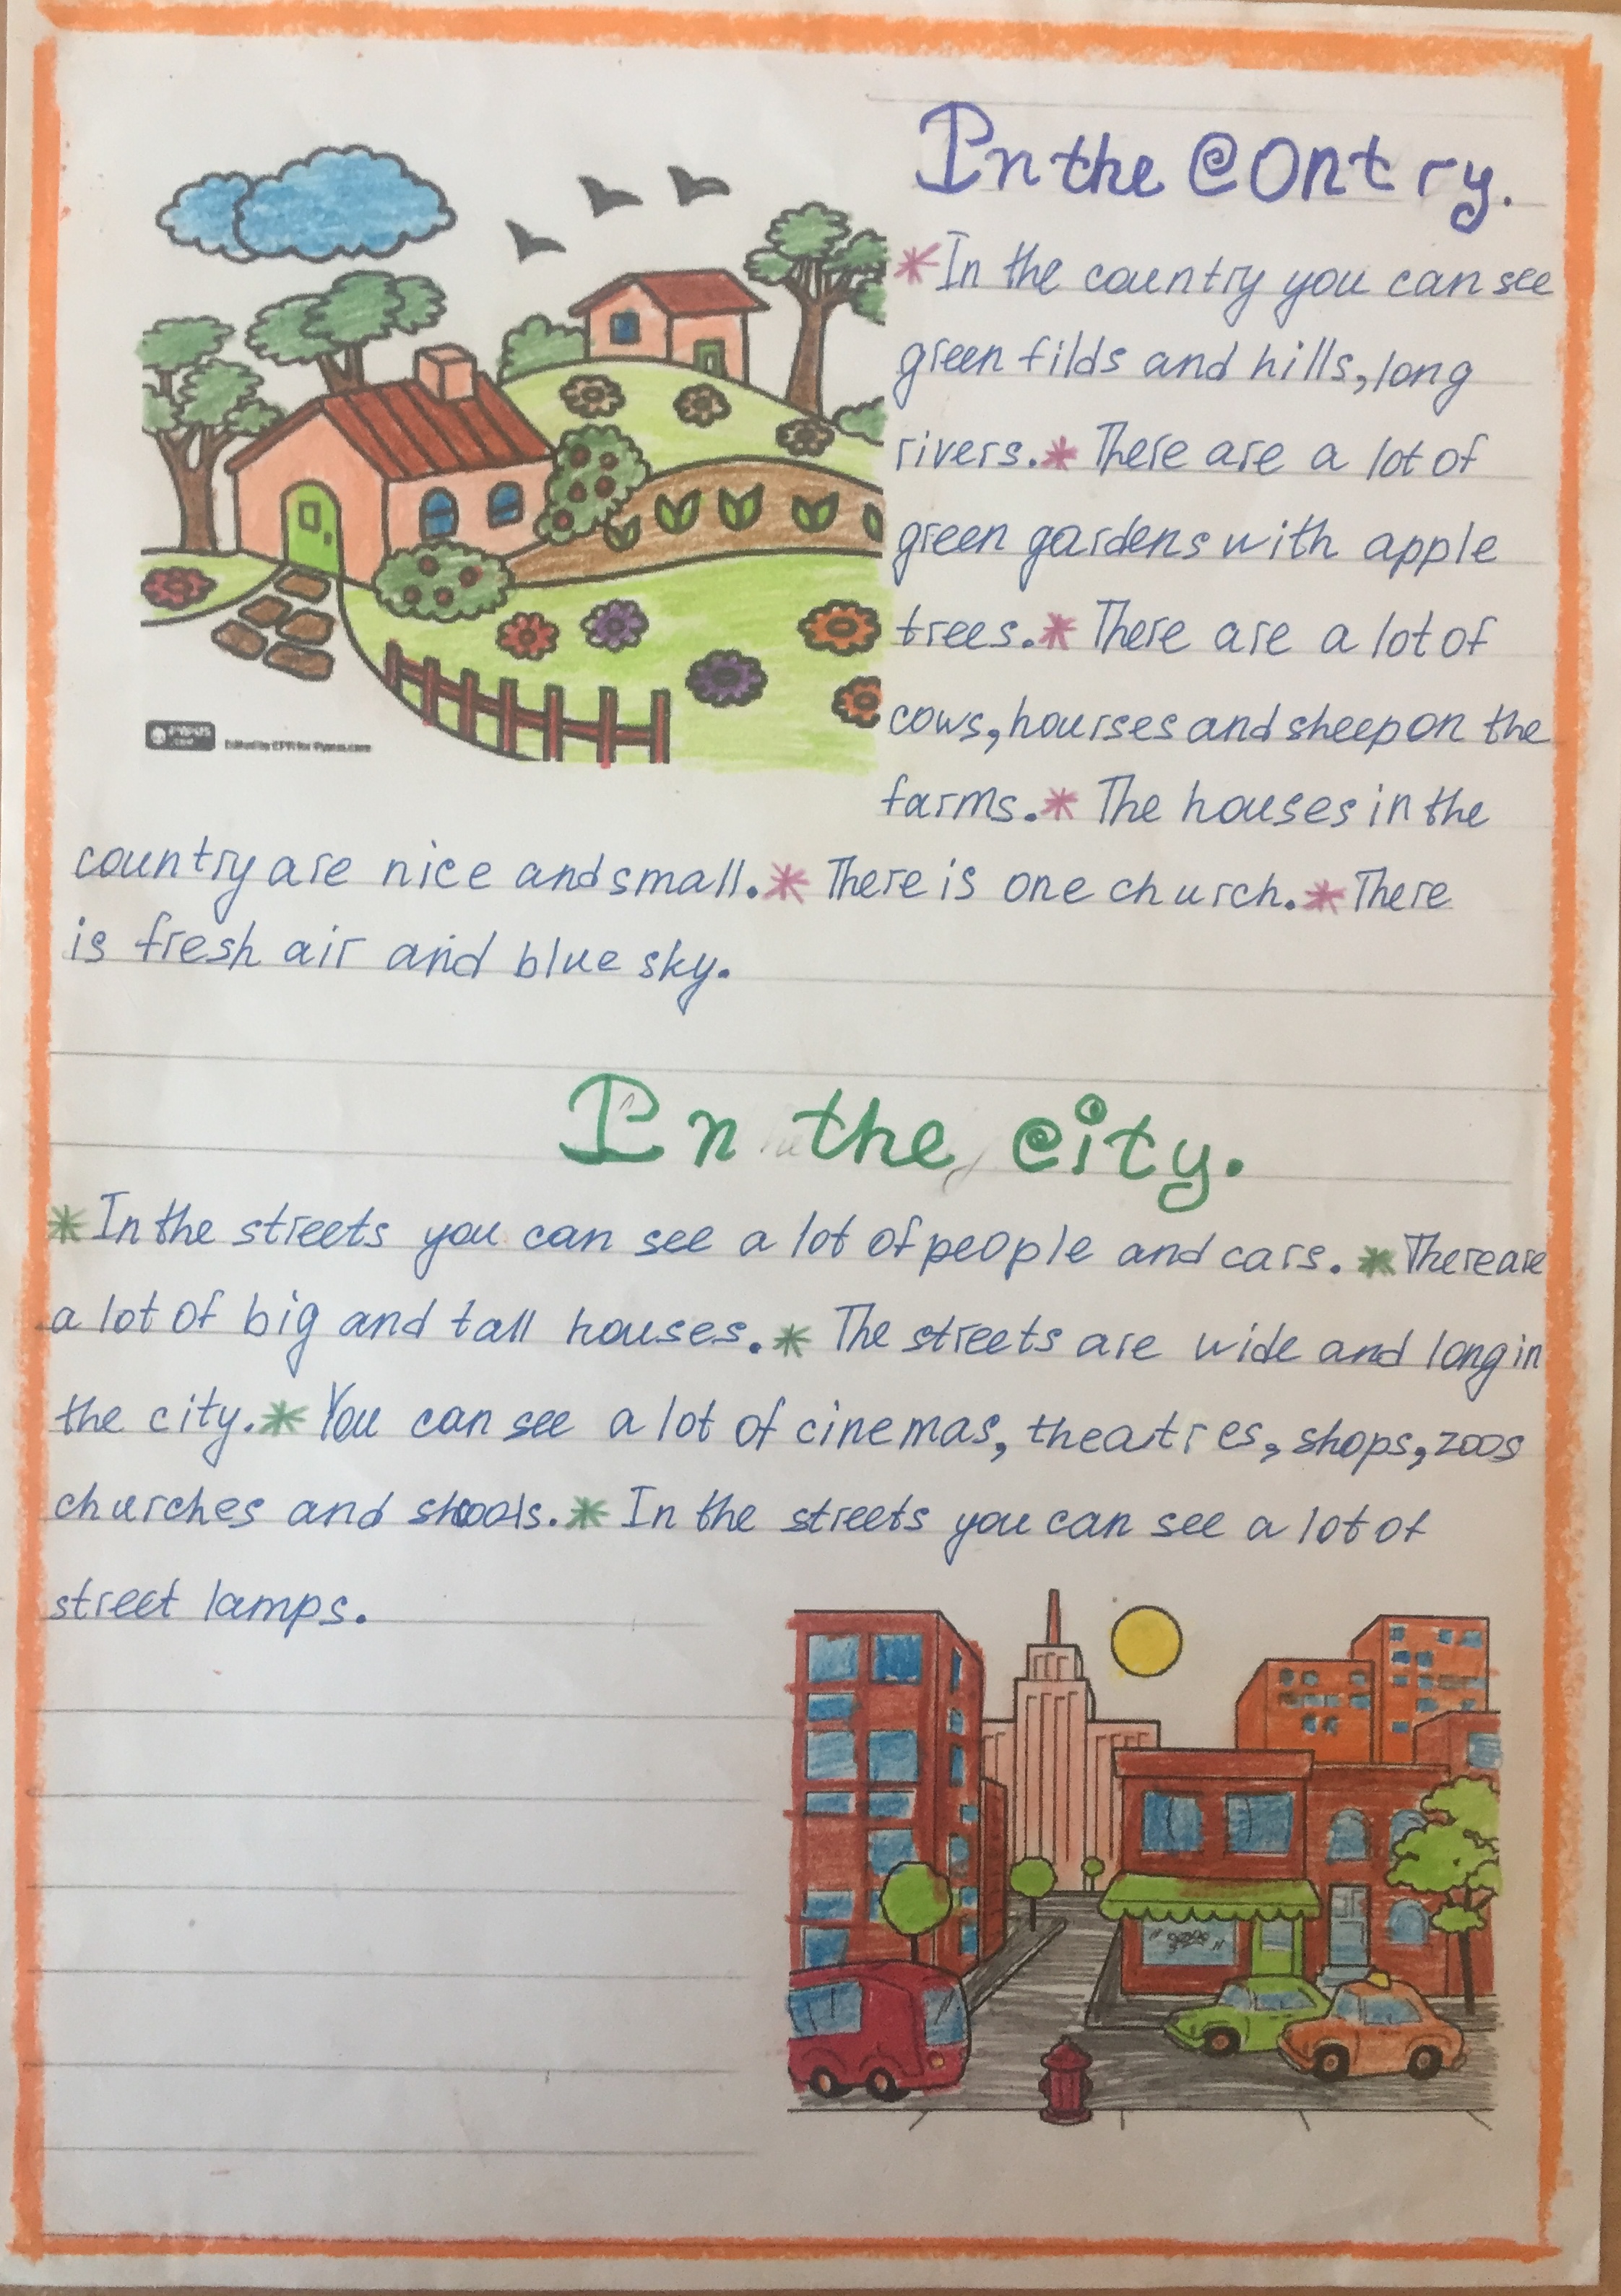 In the contry.
*In the country you can see
green filds and hills, long
rivers.* There are a lot of
green gardens with apple
trees.* There are a lot of
cows, hourses and sheep on the
farms.* The houses in the
country are nice and small.* There is one church.* There
is fresh air and blue sky.
In the city.
*In the streets you can see a lot of people and cars. * There are
a lot of big and tall houses.* The streets are wide and long in
the city.* You can see a lot of cinemas, theatres, shops, zoos
churches and shools.* In the streets you can see a lot of
street lamps.